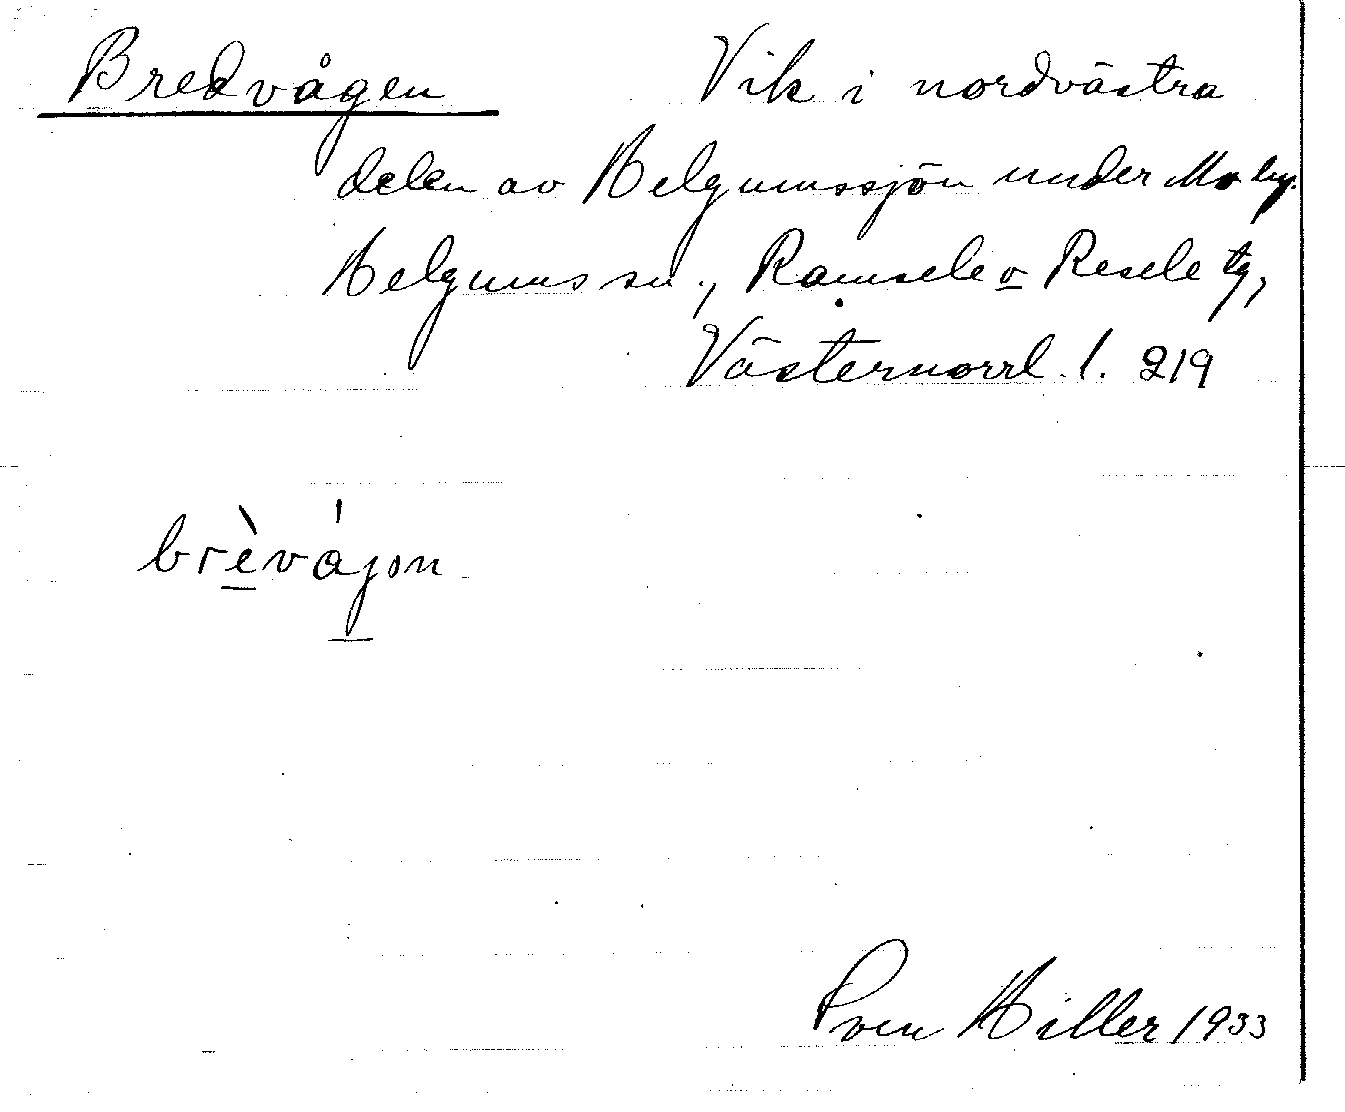 Bredvågen Vik i nordvästra
delen av Helgumssjön under Mo by.
Helgums sn., Ramsele o Resele tg,
Västernorrl. l. 219
brèvájon
Sven Hiller 1933